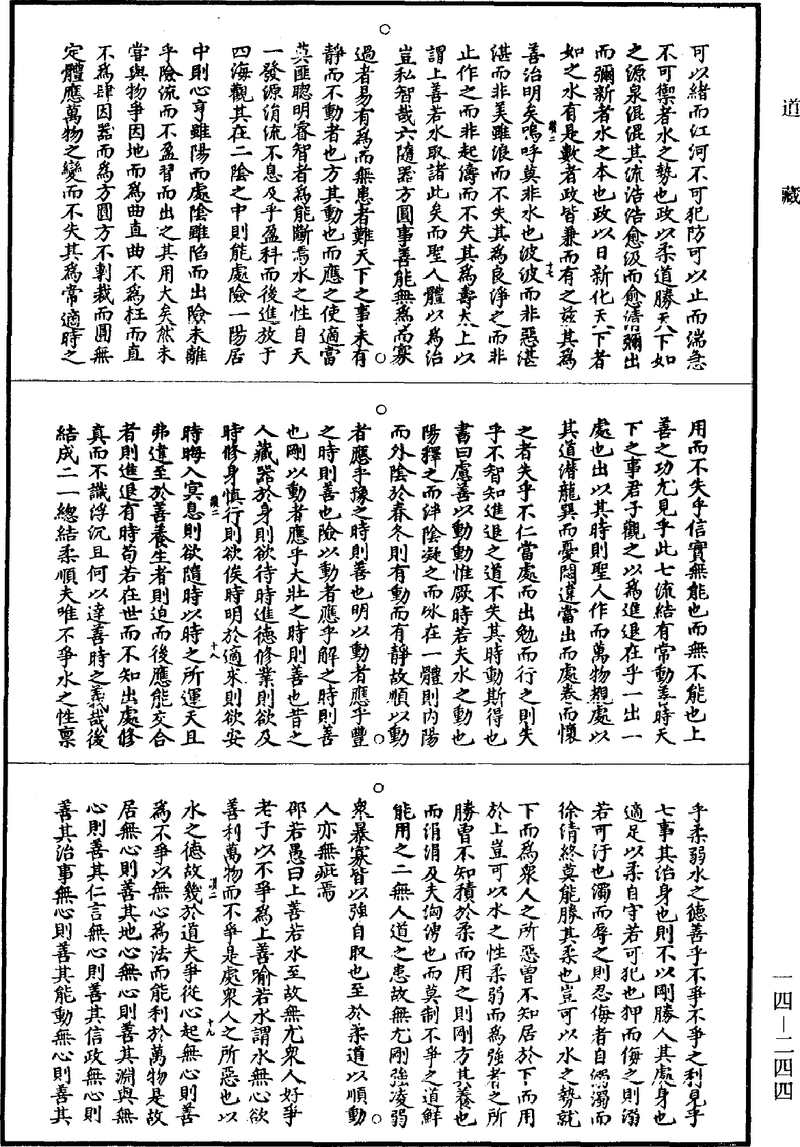 道藏
可以緒而江河不可犯防可以止而湍急
不可禦者水之勢也政以柔道勝天下如
之源泉混混其流浩浩愈汲而愈清彌出
而彌新者水之本也政以日新化天下者
如之水有是數者政皆兼而有之茲其為
善治明矣嗚呼莫非水也波波而非惡湛
湛而非美雖浪而不失其為良淨之而非
止作之而非起濤而不失其為壽太上以
謂上善若水取諸此矣而聖人體以為治
豈私智哉六隨器方圓事善能無為而寡
過者易有為而無患者難天下之事未有
靜而不動者也方其動也而應之使適當
莫匪聰明睿智者為能斷焉水之性自天
一發源涓流不息及乎盈科而後進放于
四海觀其在二陰之中則能處險一陽居
中則心亨雖陽而處陰雖陷而出險未離
乎險流而不盈習而出之其用大矣然未
嘗與物爭因地而為曲直曲不為枉而直
不為肆因器而為方圓方不剸裁而圓無
定體應萬物之變而不失其為常適時之
用而不失乎信實無能也而無不能也上
善之功尤見乎此七流結有常動善時天
下之事君子觀之以為進退在乎一出一
處也出以其時則聖人作而萬物覩處以
其道潛龍巽而憂悶違當出而處卷而懷
之者失乎不仁當處而出勉而行之則失
乎不智知進退之道不失其時動斯得也
書曰慮善以動動惟厥時若夫水之動也
陽釋之而泮陰凝之而冰在一體則內陽
而外陰於春冬則有動而有靜故順以動
者應乎豫之時則善也明以動者應乎豐
之時則善也險以動者應乎解之時則善
也剛以動者應乎大壯之時則善也昔之
人藏器於身則欲待時進德修業則欲及
時修身慎行則欲俟時明於適來則欲安
時晦入冥息則欲隨時以時之所運天且
弗違至於善養生者則迫而後應能交合
者則進退有時苟若在世而不知出處修
真而不識浮沉且何以達善時之義哉後
結成二一總結柔順夫唯不爭水之性稟
乎柔弱水之德善乎不爭不爭之利見乎
七事其治身也則不以剛勝人其處身也
適足以柔自守若可犯也狎而侮之則溺
若可汙也濁而辱之則忍侮者自溺濁而
徐清終莫能勝其柔也豈可以水之勢就
下而為衆人之所惡曾不知居於下而用
於上豈可以水之性柔弱而為強者之所
勝曾不知積於柔而用之則剛方其養也
而涓涓及夫洶湧也而莫制不爭之道鮮
能用之二無人道之患故無尤剛強凌弱
衆暴寡皆以強自取也至於柔道以順動
人亦無疵焉
邵若愚曰上善若水至故無尤衆人好爭
老子以不爭為上善喻若水謂水無心欲
善利萬物而不爭是處衆人之所惡也以
水之德故幾於道夫爭從心起無心則善
為不爭以無心為法而能利於萬物是故
居無心則善其地心無心則善其淵與無
心則善其仁言無心則善其信政無心則
善其治事無心則善其能動無心則善其
一四—二四四